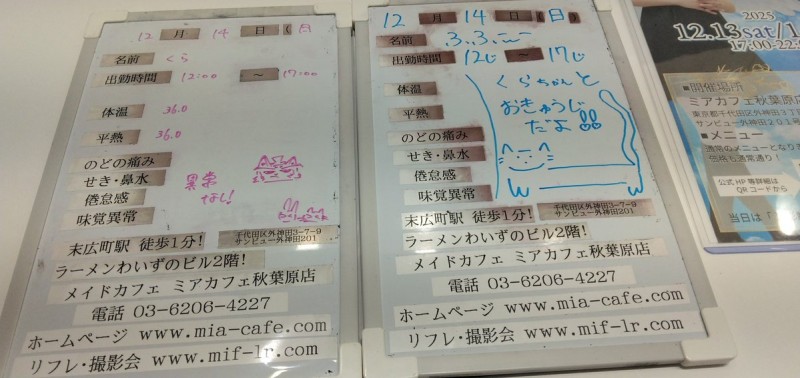 12 月 14 日 (日)
名前 くら
出勤時間 12:00 ～ 17:00
体温 36.0
平熱 36.0
のどの痛み
せき・鼻水
倦怠感
味覚異常
異常
なし!
末広町駅 徒歩1分!
千代田区外神田3-7-9
サンビュー外神田201
ラーメンわいずのビル2階!
メイドカフェ ミアカフェ秋葉原店
電話 03-6206-4227
ホームページ www.mia-cafe.com
リフレ・撮影会 www.mif-lr.com
12 月 14 日 (日)
名前
出勤時間 12じ ～ 17じ
体温
平熱
のどの痛み
せき・鼻水
倦怠感
味覚異常
くらちゃんと
おきゅうじ
だよ!!
末広町駅 徒歩1分!
千代田区外神田3-7-9
サンビュー外神田201
ラーメンわいずのビル2階!
メイドカフェ ミアカフェ秋葉原店
電話 03-6206-4227
ホームページ www.mia-cafe.com
リフレ・撮影会 www.mif-lr.com
2025
12.13sat/1
17:00-22:
■開催場所
ミアカフェ秋葉原店
東京都千代田区外神田3丁目
サンビュー外神田201
■メニュー
通常のメニューとなりま
価格も通常通り!
公式HP等詳細は
QRコードから
当日は